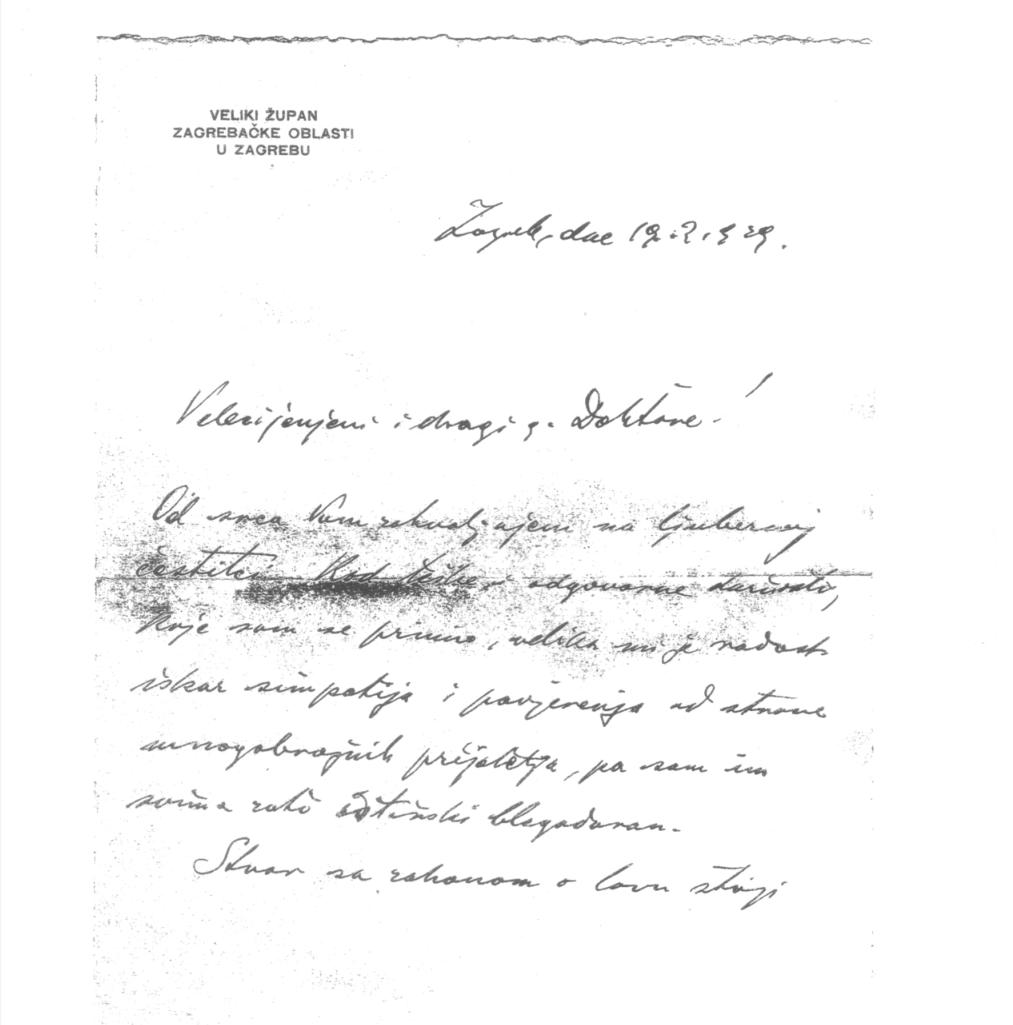 VELIKI ŽUPAN
ZAGREBAČKE OBLASTI
U ZAGREBU
Zagreb, dne 19.2.1929.
Velecijenjeni i dragi g. Doktore!
Od srca Vam zahvaljujem na ljubeznoj
čestitci. Kod teške i odgovorne dužnosti,
koje sam se primio, velika mi je radost
iskaz simpatija i povjerenja od strane
mnogobrojnih prijatelja, pa sam im
svima zato istinski blagodaran.
Stvar sa zakonom o lovu stoji